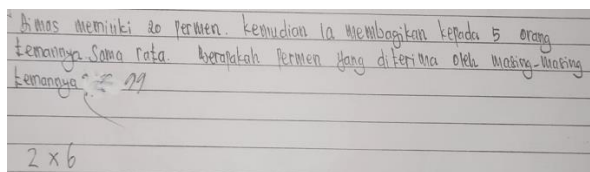 Dimas memiliki 20 permen. kemudian ia membagikan kepada 5 orang
temannya sama rata. Berapakah permen yang diterima oleh masing-masing
temannya?
2 x 6